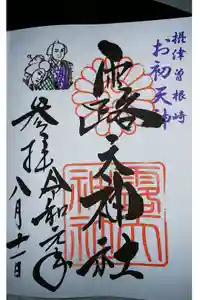 摂津曽根崎
お初天神
露天神社
参拝
令和元年
八月十一日
露天神社